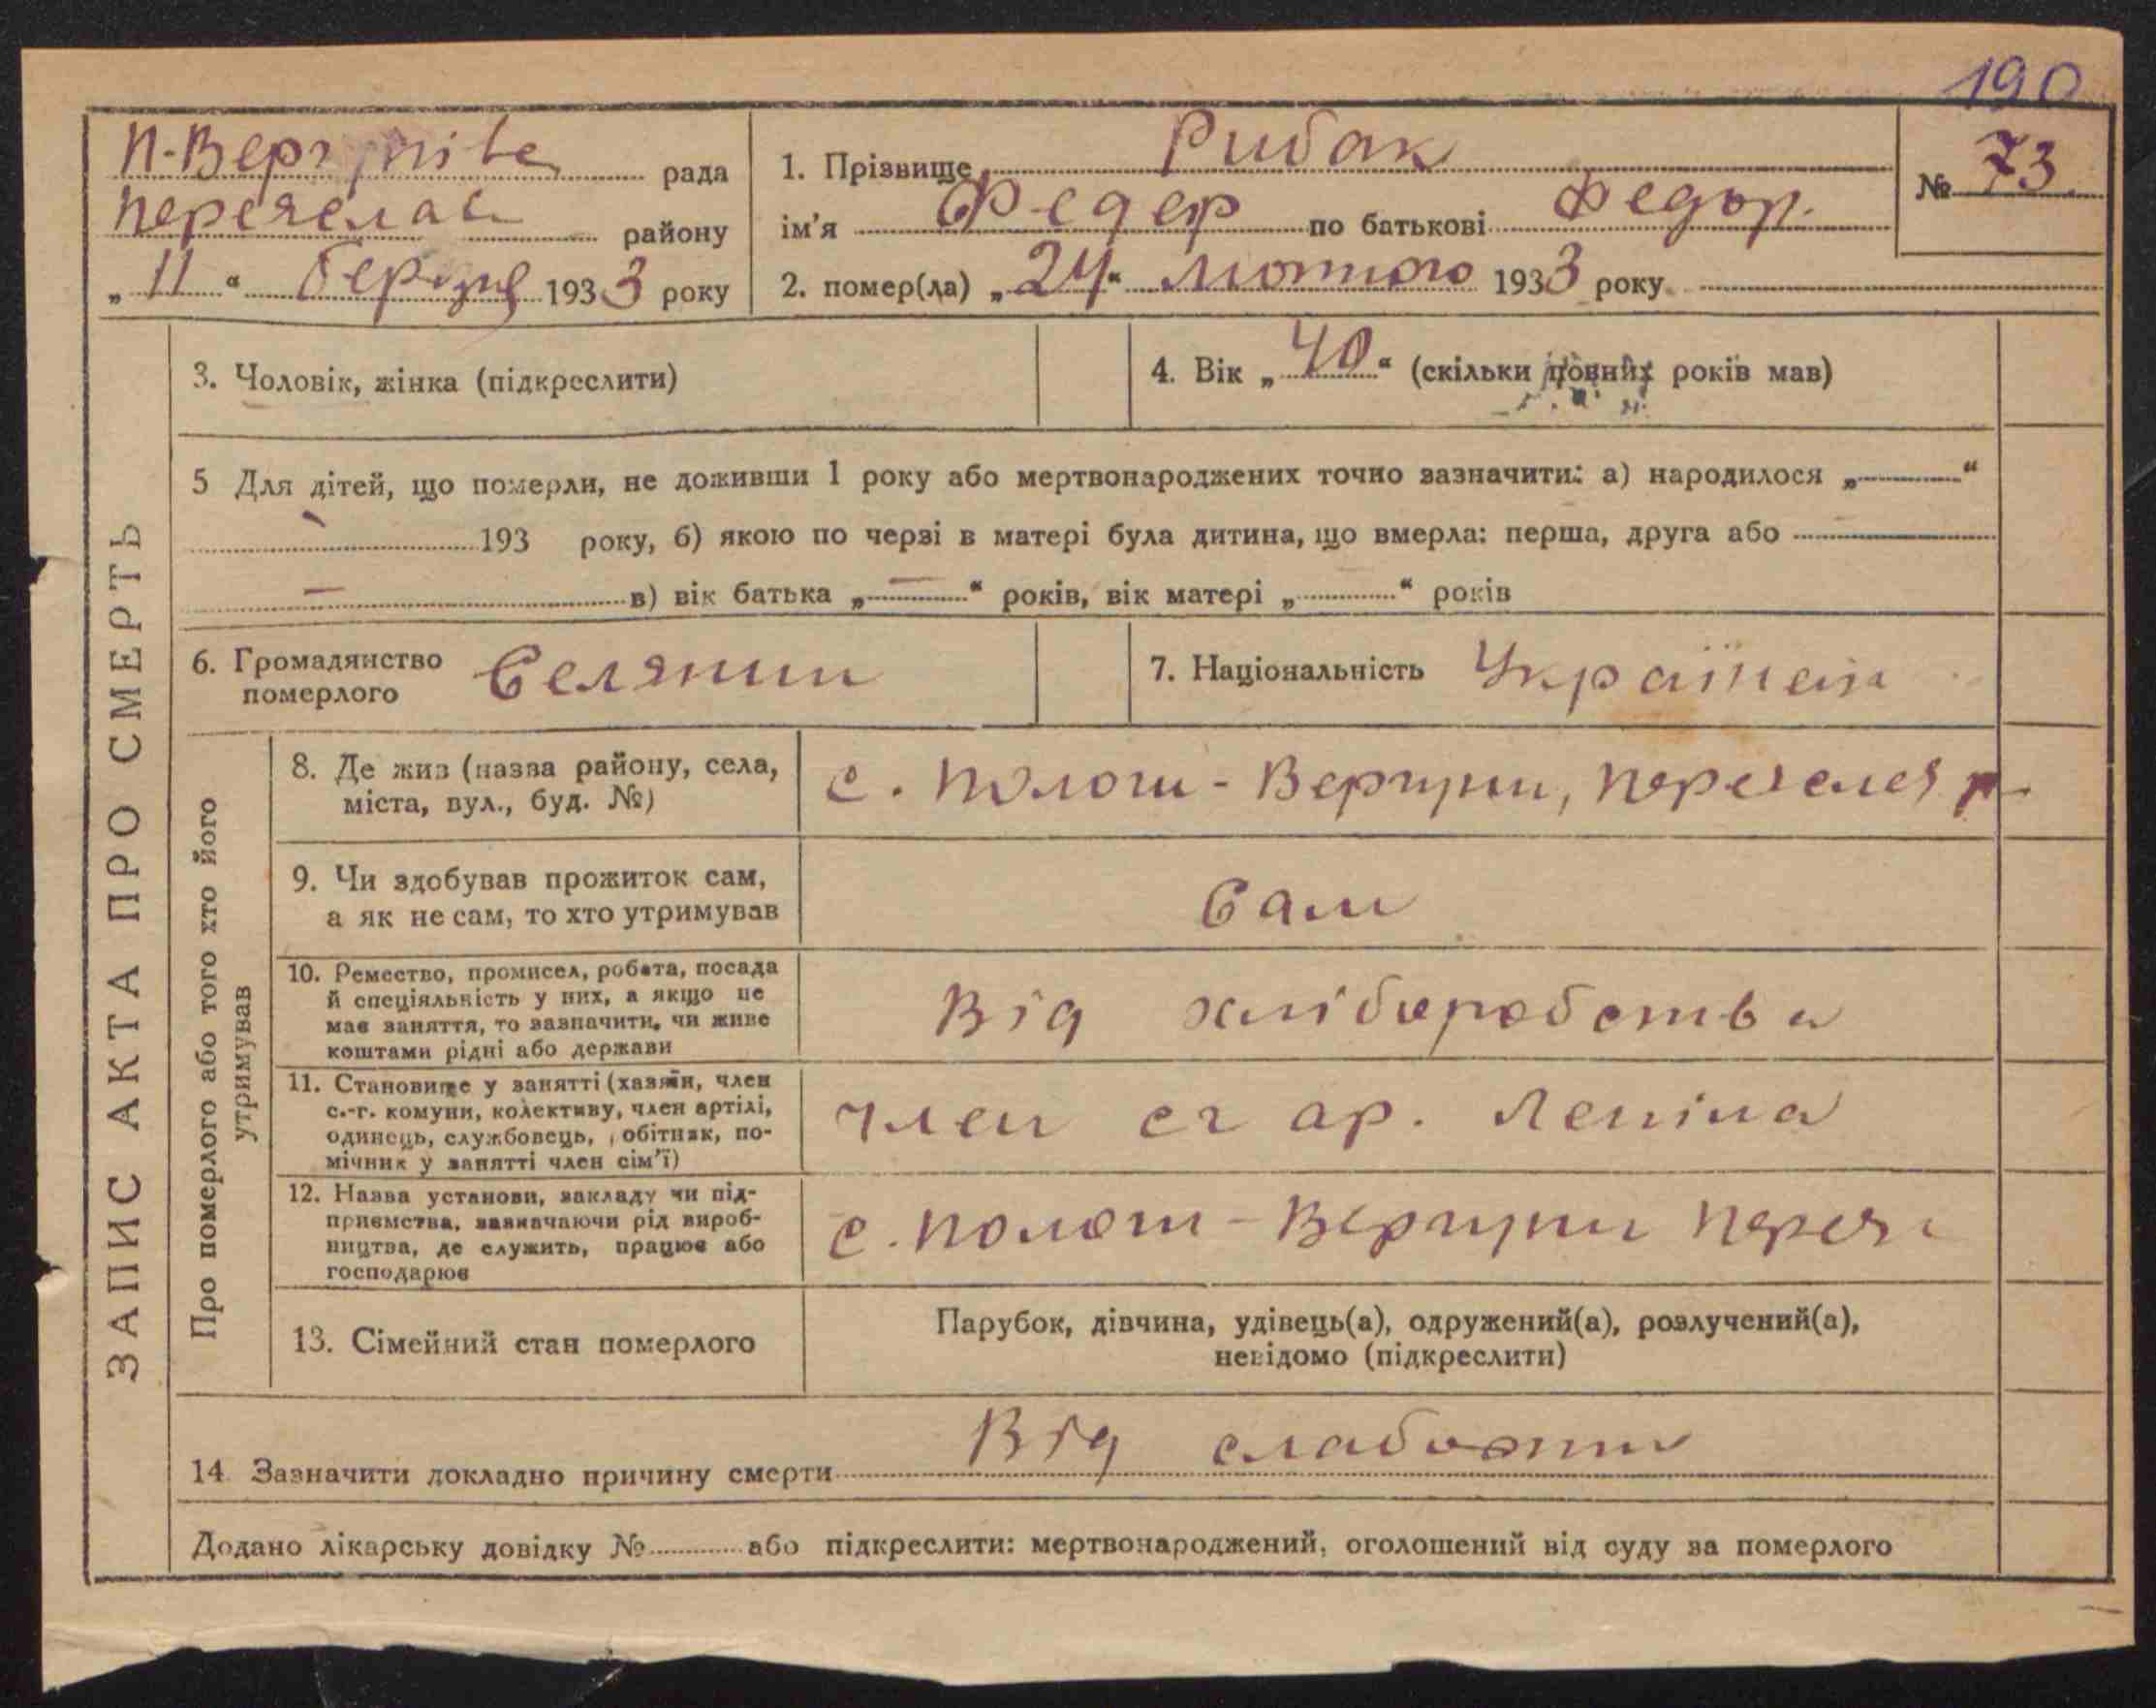 190
П-Вергунівс рада
Переяслав району
„11“ березня 1933 року
1. Прізвище Рибак
№ 73
ім'я Федер по батькові Федор.
2. помер(ла) „24“ лютого 1933 року
ЗАПИС АКТА ПРО СМЕРТЬ
3. Чоловік, жінка (підкреслити)
4. Вік „40“ (скільки повних років мав)
5 Для дітей, що померли, не доживши 1 року або мертвонароджених точно зазначити: а) народилося „ “
193 року, б) якою по черзі в матері була дитина, що вмерла: перша, друга або
— в) вік батька „—“ років, вік матері „ “ років
6. Громадянство
померлого Селянин
7. Національність Українец
Про померлого або того хто його
утримував
8. Де жив (назва району, села,
міста, вул., буд. №)
с. Полог-Вергуни, Переяслав р
9. Чи здобував прожиток сам,
а як не сам, то хто утримував
Сам
10. Ремество, промисел, робота, посада
й спеціяльність у них, а якщо не
має заняття, то зазначити, чи живе
коштами рідні або держави
Від хліборобства
11. Становище у занятті (хазяїн, член
с.-г. комуни, колективу, член артілі,
одинець, службовець, робітник, по-
мічник у занятті член сім'ї)
член сг ар. Леніна
12. Назва установи, закладу чи під-
приємства, зазначаючи рід вироб-
ництва, де служить, працює або
господарює
с. Полог-Вергуни Переяс
13. Сімейний стан померлого
Парубок, дівчина, удівець(а), одружений(а), розлучений(а),
невідомо (підкреслити)
14. Зазначити докладно причину смерти Від слабости
Додано лікарську довідку № або підкреслити: мертвонароджений, оголошений від суду за померлого